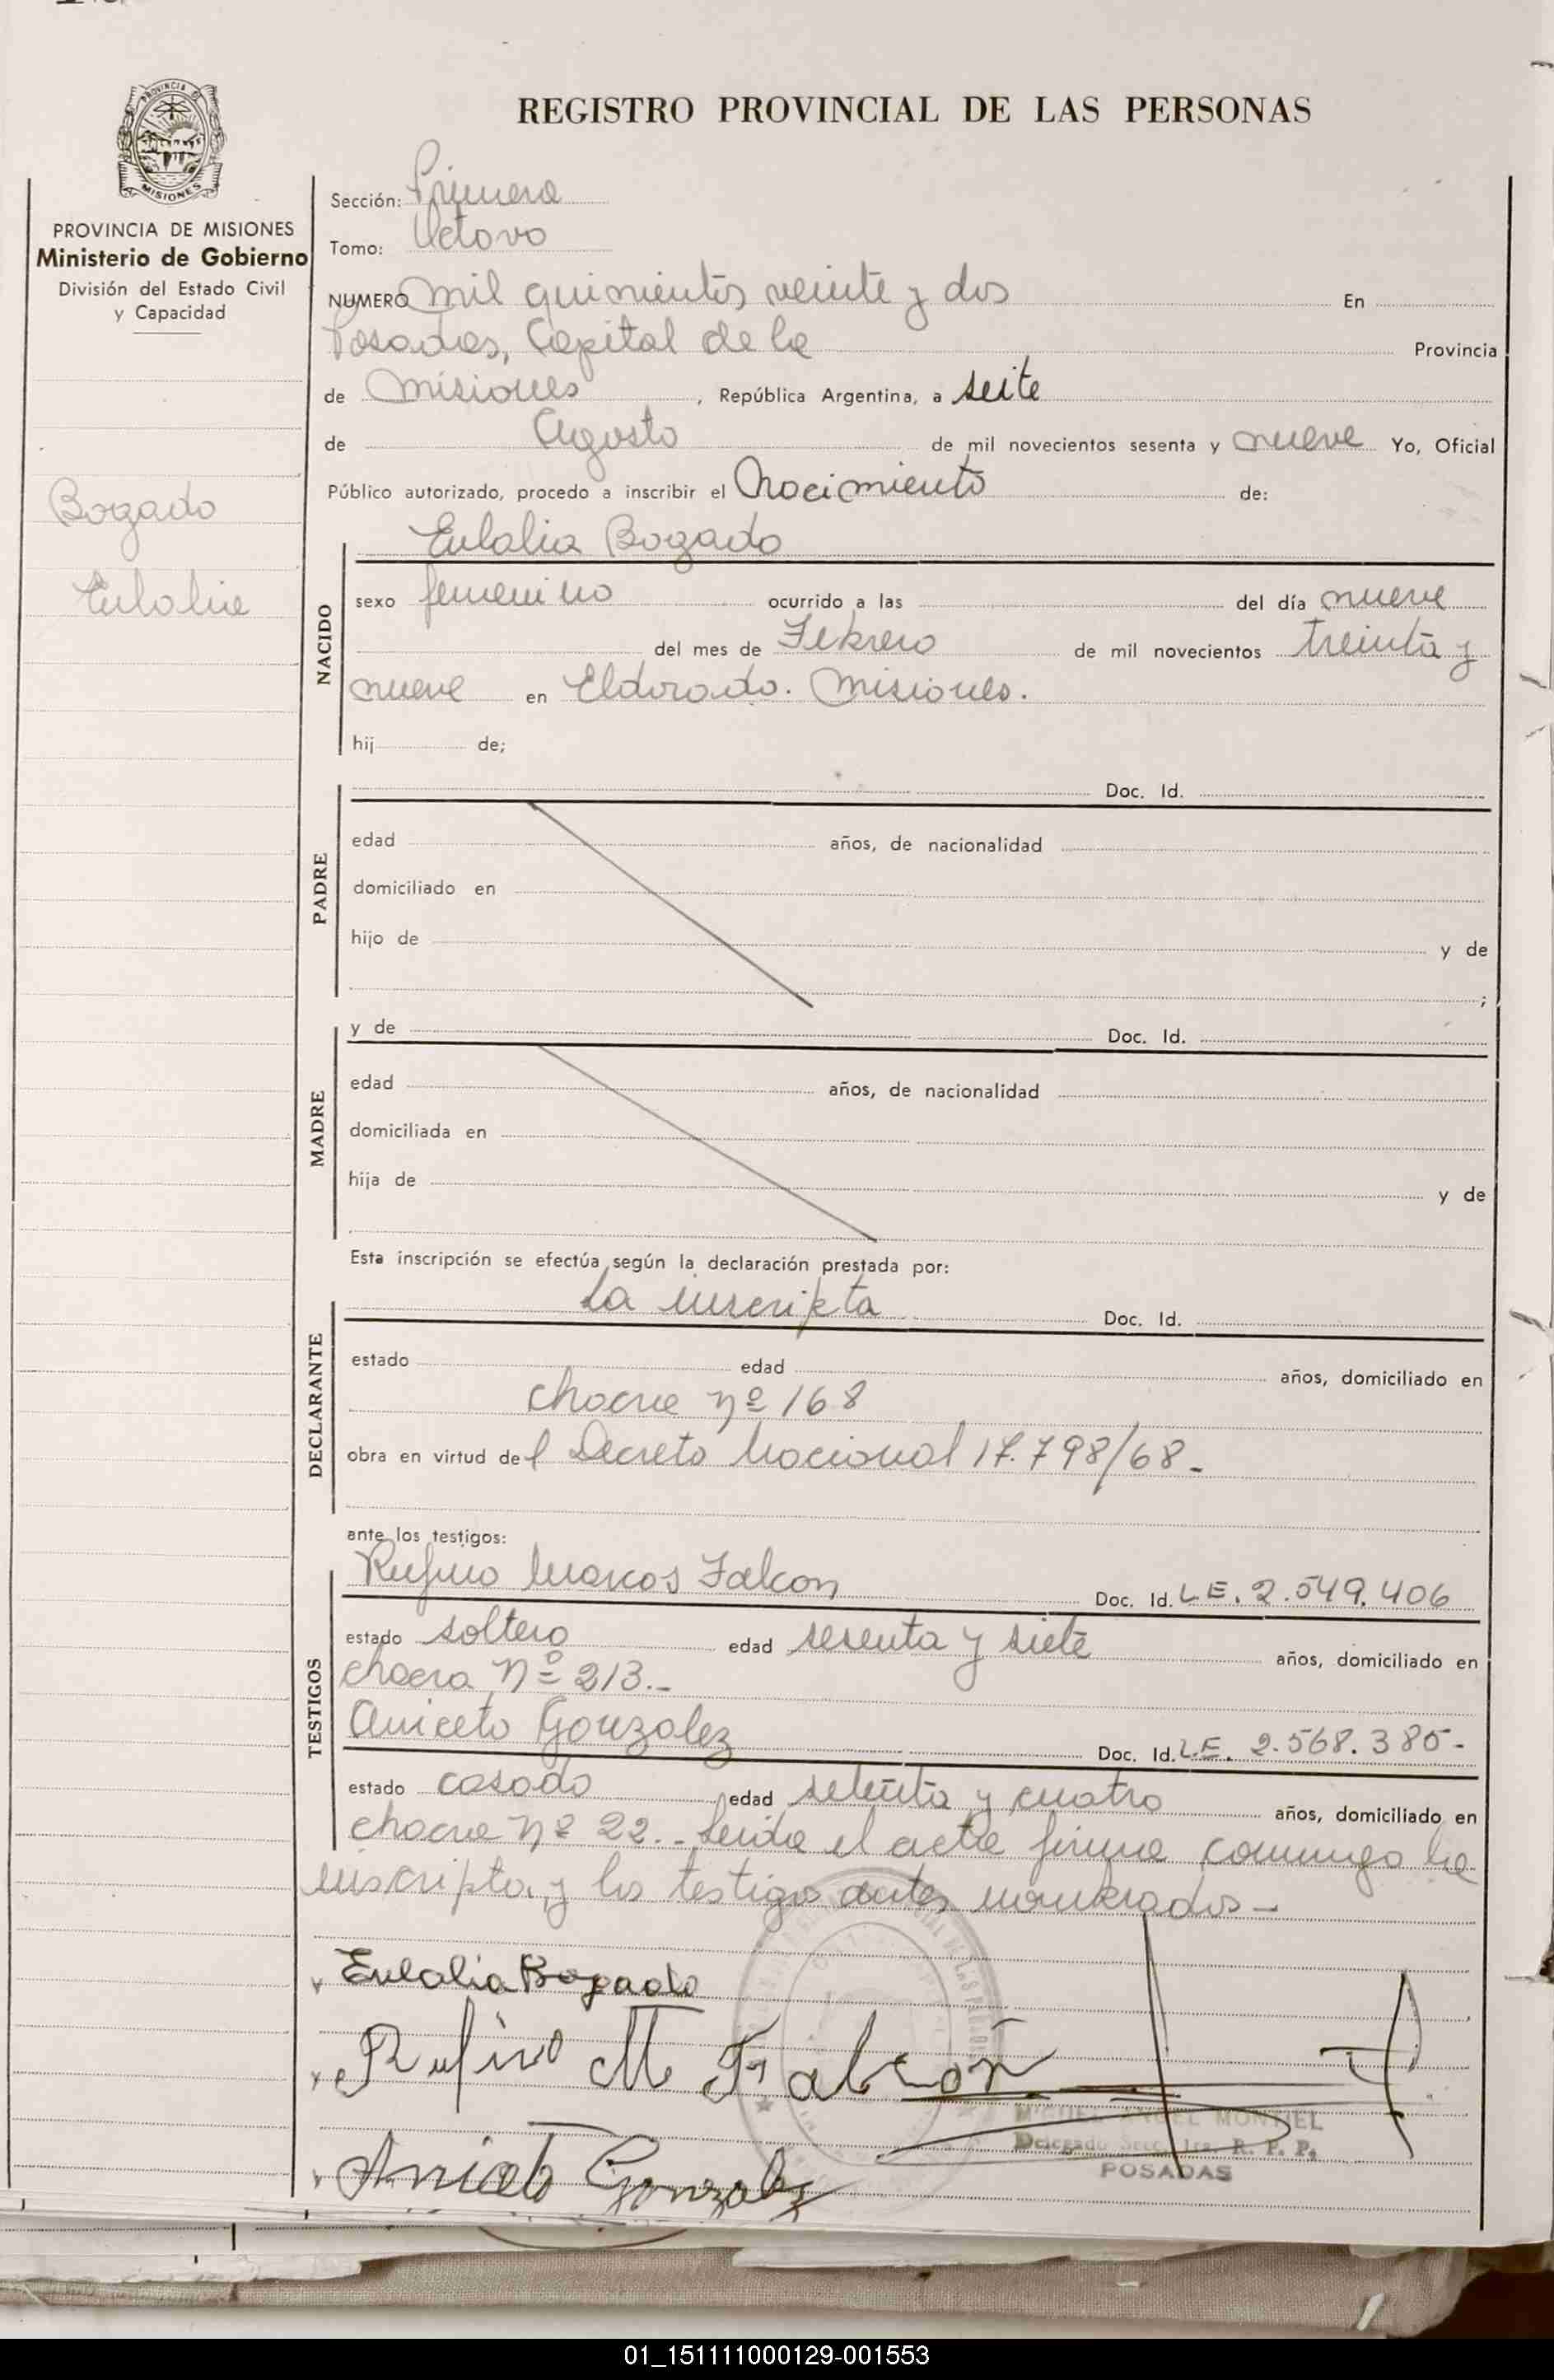 REGISTRO PROVINCIAL DE LAS PERSONAS
PROVINCIA DE MISIONES
Ministerio de Gobierno
División del Estado Civil
y Capacidad
Bogado
Eulalia
Sección: Primera
Tomo: Octavo
NUMERO mil quinientos veinte y dos En
Posadas, Capital de la Provincia
de Misiones, República Argentina, a siete
de Agosto de mil novecientos sesenta y nueve Yo, Oficial
Público autorizado, procedo a inscribir el Nacimiento de:
NACIDO
Eulalia Bogado
sexo femenino ocurrido a las del día nueve
del mes de Febrero de mil novecientos treinta y
nueve en Eldorado. Misiones.
hij de;
PADRE
Doc. Id.
edad años, de nacionalidad
domiciliado en
hijo de y de
;
MADRE
y de Doc. Id.
edad años, de nacionalidad
domiciliada en
hija de y de
Esta inscripción se efectúa según la declaración prestada por:
DECLARANTE
La inscripta Doc. Id.
estado edad años, domiciliado en
chacra nº 168
obra en virtud del Decreto Nacional 17.798/68-
ante los testigos:
TESTIGOS
Rufino Marcos Falcon Doc. Id. L.E. 2.549.406
estado soltero edad sesenta y siete años, domiciliado en
chacra Nº 213.-
Aniceto Gonzalez Doc. Id. L.E. 2.568.385-
estado casado edad setenta y cuatro años, domiciliado en
chacra Nº 22.- Leida el acta firma conmigo la
inscripta, y los testigos antes nombrados-
Eulalia Bogado
Rufino M Falcón
MIGUEL ANGEL MONTIEL
Delegado Secc. 1ra. R. P. P.
POSADAS
Aniceto Gonzalez
01_151111000129-001553